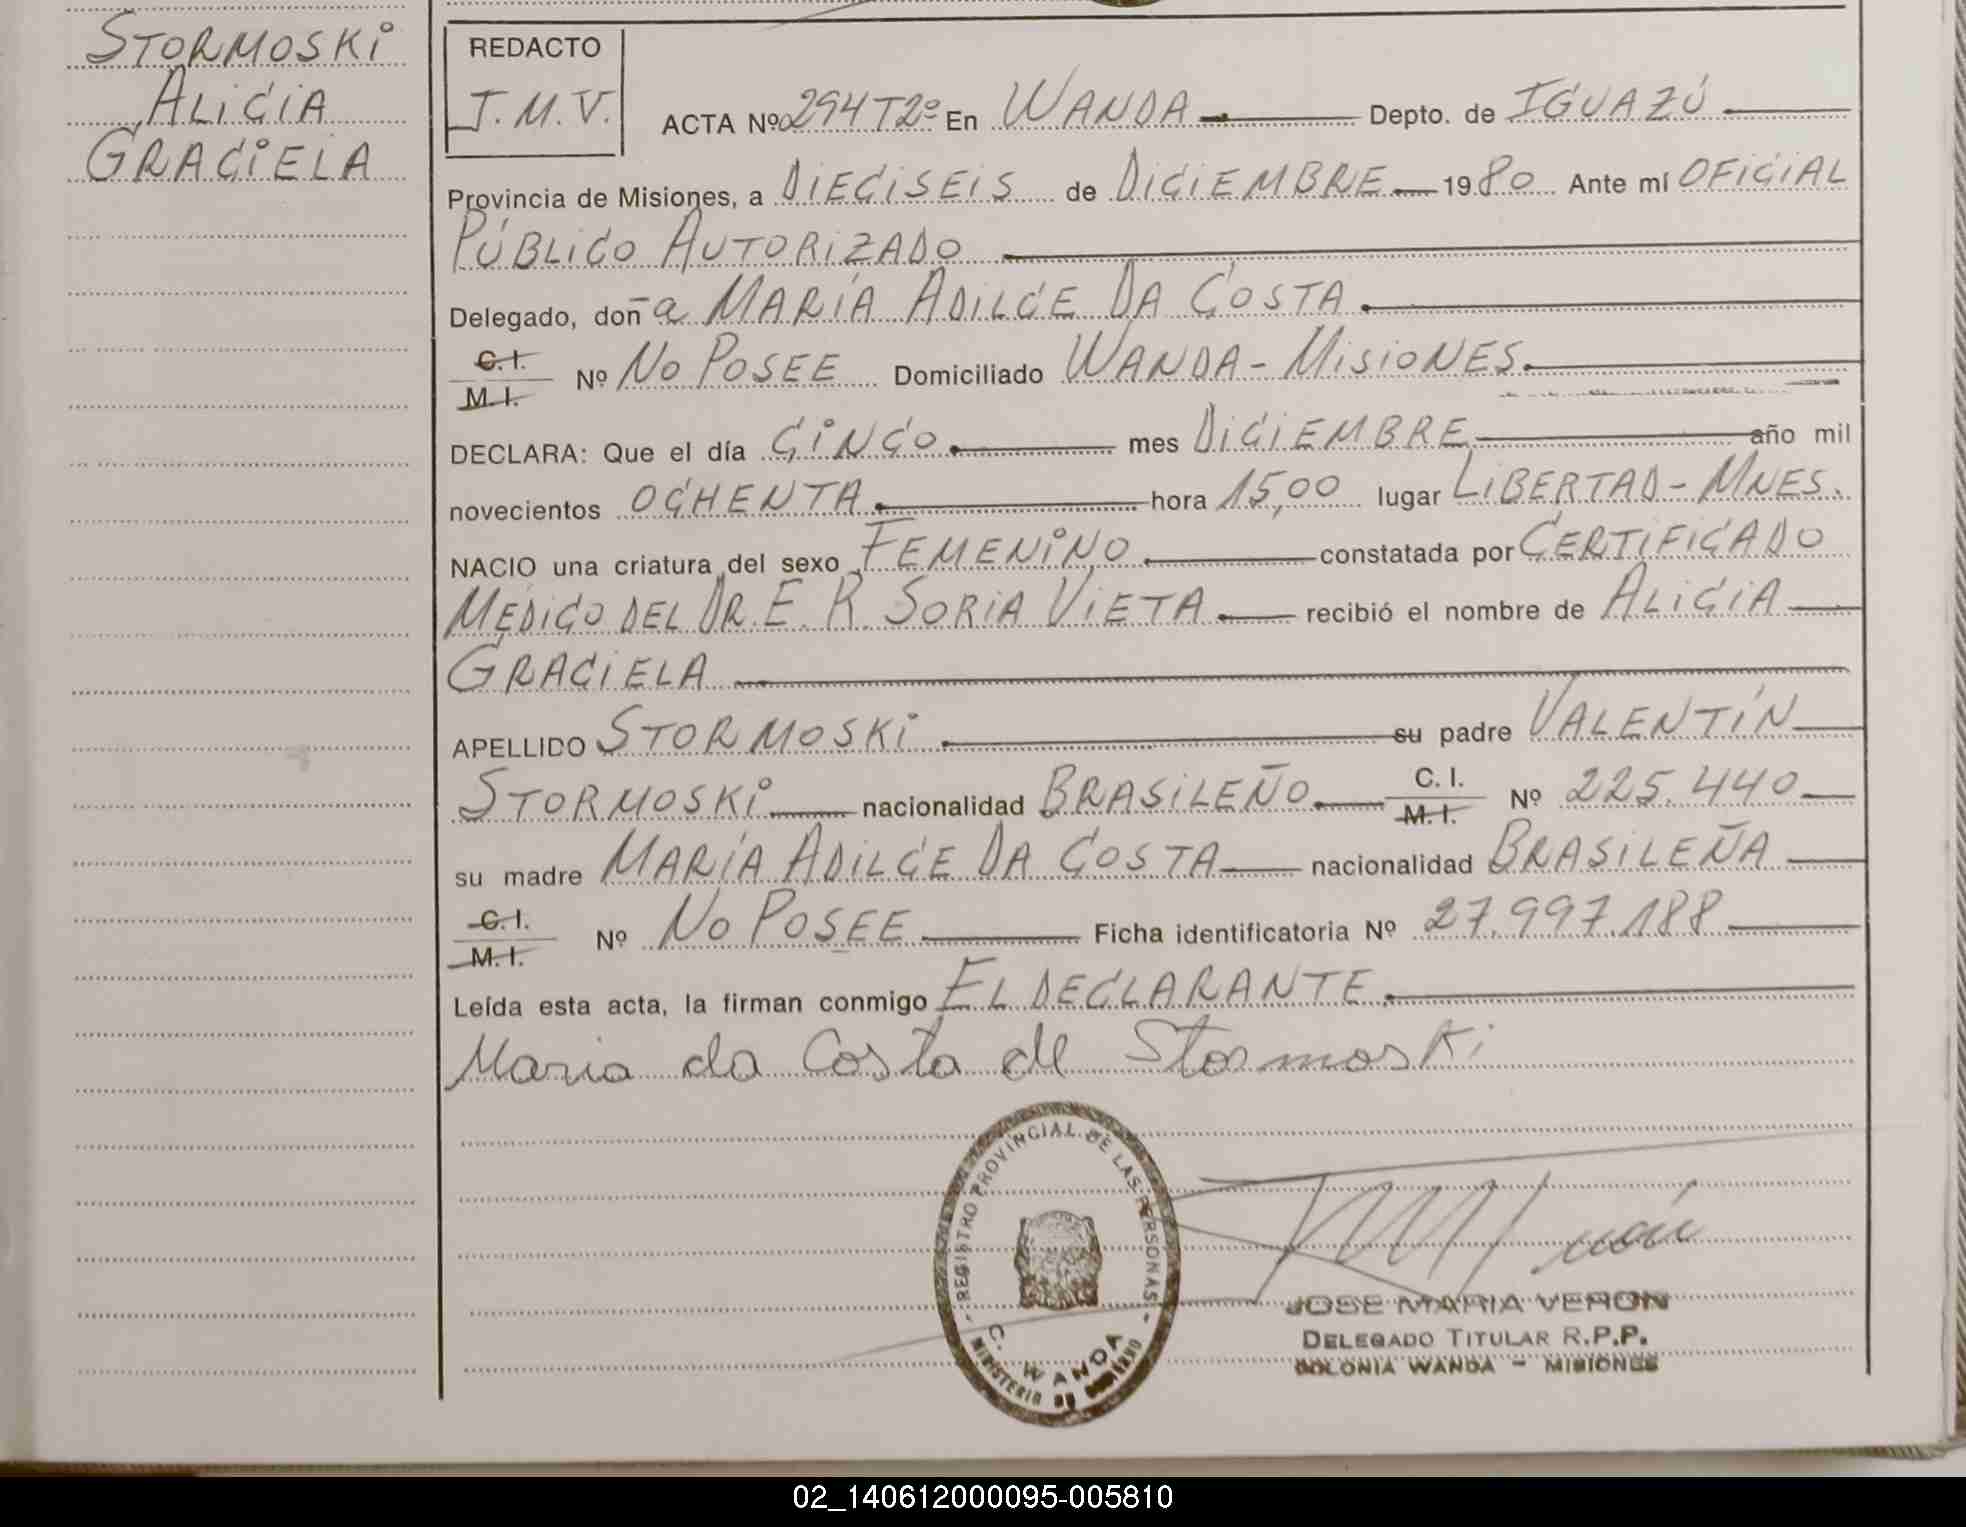 STORMOSKI
ALICIA
GRACIELA
REDACTO
J.M.V.
ACTA Nº 294 T2º En WANDA Depto. de IGUAZÚ
Provincia de Misiones, a DIECISEIS de DICIEMBRE 1980 Ante mí OFICIAL
PÚBLICO AUTORIZADO
Delegado, doña MARÍA ADILCE DA COSTA
C. I.
M. I.
Nº NO POSEE Domiciliado WANDA - MISIONES
DECLARA: Que el día CINCO mes DICIEMBRE año mil
novecientos OCHENTA hora 15,00 lugar LIBERTAD - MNES.
NACIO una criatura del sexo FEMENINO constatada por CERTIFICADO
MÉDICO DEL DR. E. R. SORIA VIETA recibió el nombre de ALICIA
GRACIELA
APELLIDO STORMOSKI su padre VALENTÍN
STORMOSKI nacionalidad BRASILEÑO C. I. M. I. Nº 225.440
su madre MARÍA ADILCE DA COSTA nacionalidad BRASILEÑA
C. I.
M. I.
Nº NO POSEE Ficha identificatoria Nº 27.997.188
Leída esta acta, la firman conmigo EL DECLARANTE
Maria da Costa de Stormoski
REGISTRO PROVINCIAL DE LAS PERSONAS
C. WANDA
MINISTERIO DE GOBIERNO
JOSE MARIA VERON
DELEGADO TITULAR R.P.P.
COLONIA WANDA - MISIONES
02_140612000095-005810